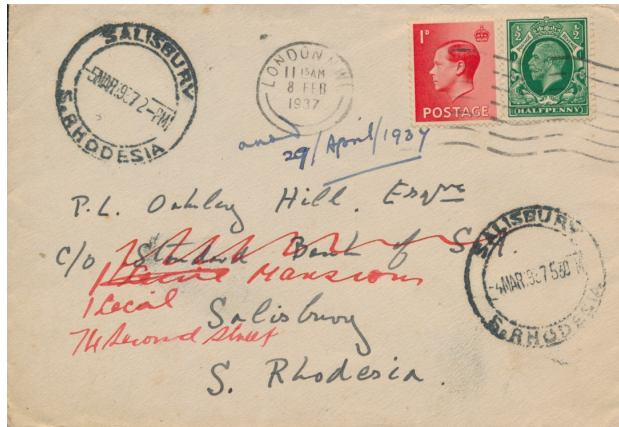 SALISBURY
5 MAR.937 2-PM
S. RHODESIA
LONDON N.W.1
11 15AM
8 FEB
1937
1D
POSTAGE
½ ½
HALFPENNY
29/April/1937
P.L. Oakley Hill. Esqre
c/o Standard Bank of S.A.
Mansions
1 Cecil
74 Second Street
Salisbury
S. Rhodesia.
SALISBURY
4 MAR.937 530
S. RHODESIA